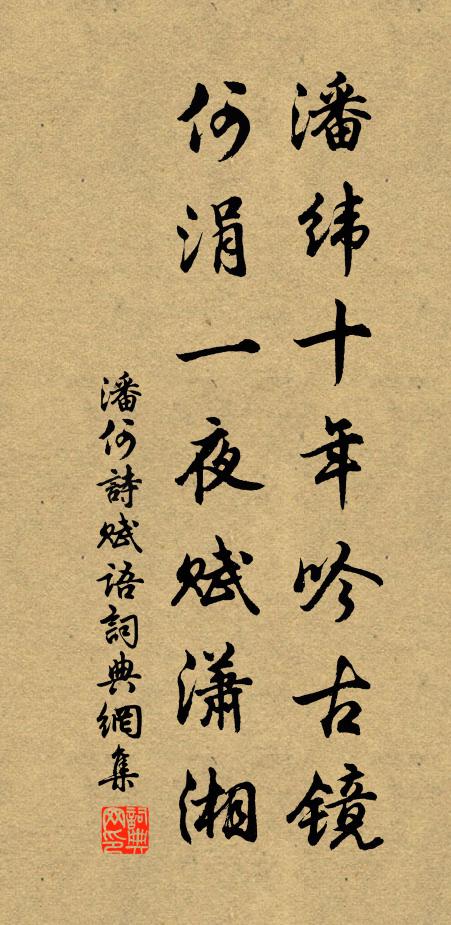 潘纬十年吟古镜
何涓一夜赋潇湘
潘何詩赋语詞典網集
詞典网印